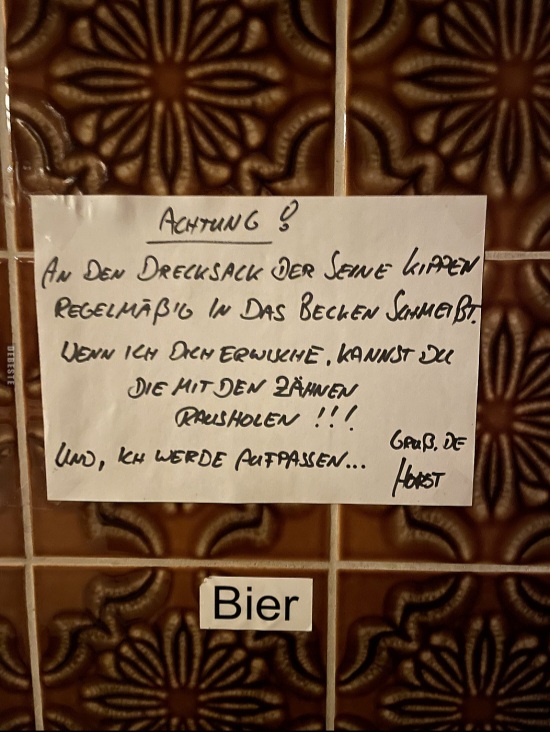 ACHTUNG !
AN DEN DRECKSACK DER SEINE KIPPEN
REGELMÄßIG IN DAS BECKEN SCHMEIßT.
WENN ICH DICH ERWISCHE, KANNST DU
DIE MIT DEN ZÄHNEN
RAUSHOLEN !!!
UND, ICH WERDE AUFPASSEN...
GRUß, DE
HORST
Bier
BEBESTE